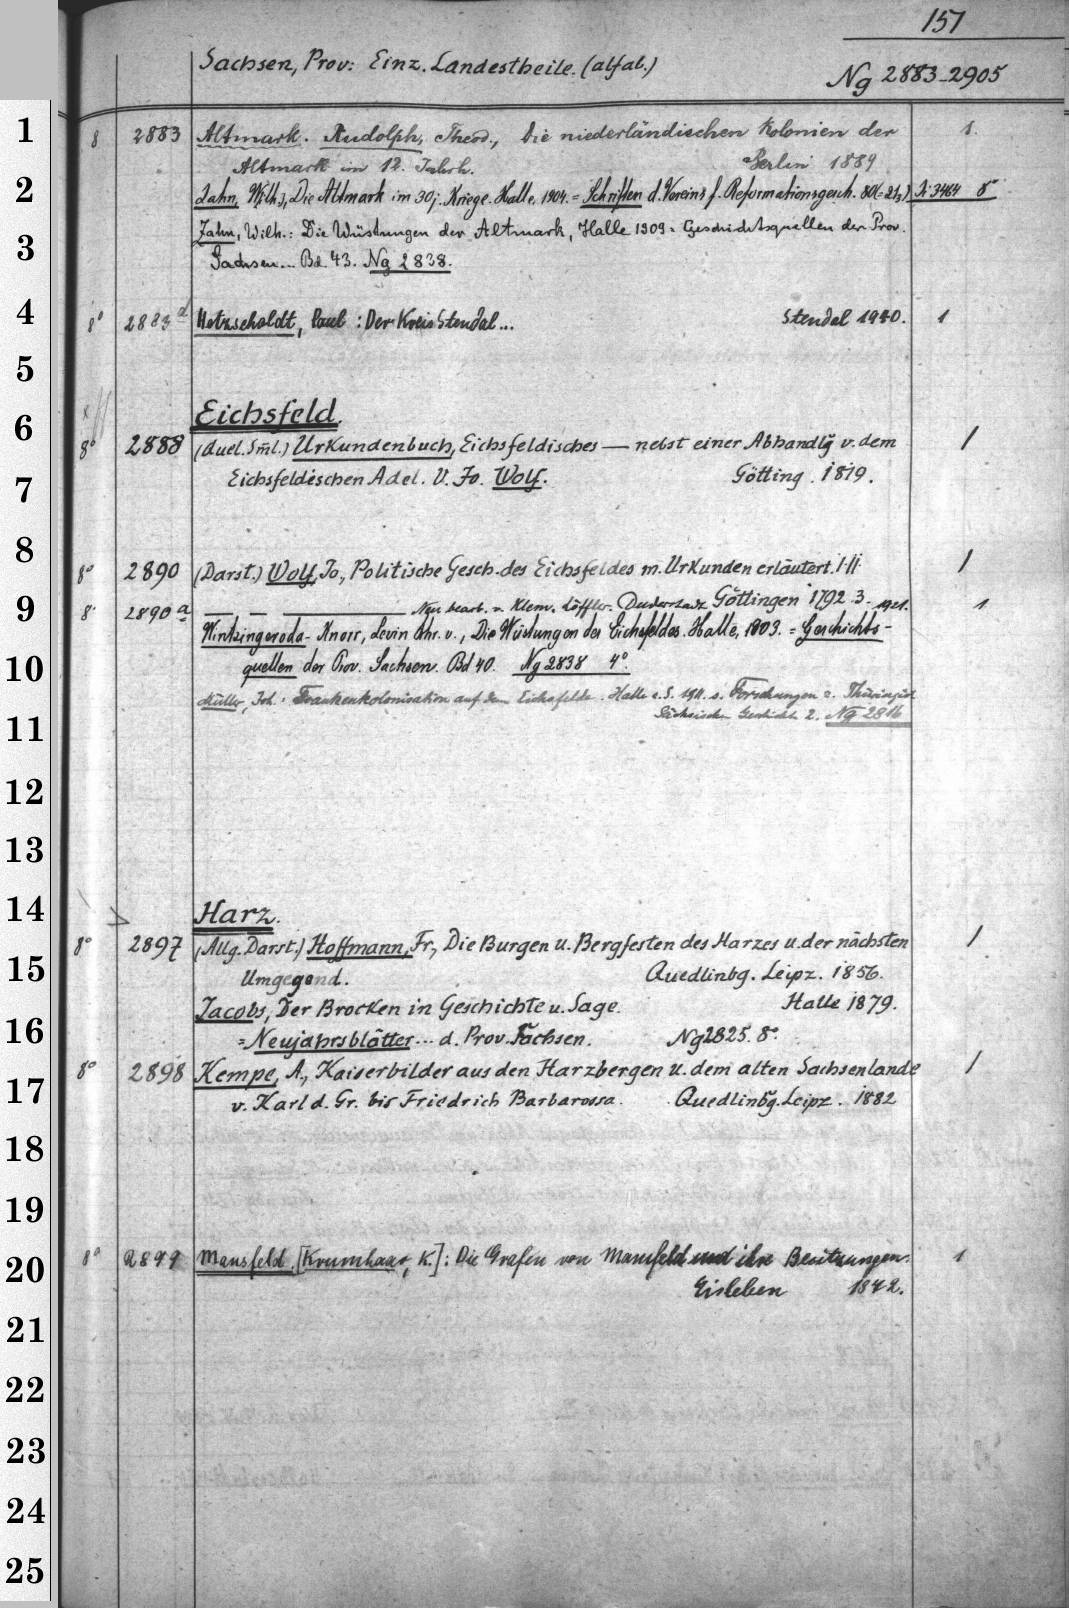 157
Sachsen, Prov: Einz. Landestheile. (alfab.)
Ng 2883-2905
1
8 2883 Altmark. Rudolph, Theod., Die niederländischen Kolonien der 1.
Altmark im 12. Jahrh. Berlin 1889
2
Zahn, Wilh., Die Altmark im 30j. Kriege. Halle, 1904. = Schriften d. Vereins f. Reformationsgesch. 80 (=21,3) Xi 3464 8°
Zahn, Wilh.: Die Wüstungen der Altmark, Halle 1909 = Geschichtsquellen der Prov.
3
Sachsen... Bd. 43. Ng 2838.
4
8° 2883 d Hetzscholdt, Paul: Der Kreis Stendal... Stendal 1940. 1
5
6
Eichsfeld.
8° 2888 (Quel. Sml.) Urkundenbuch, Eichsfeldisches — nebst einer Abhandlg v. dem 1
7
Eichsfeldischen Adel. V. Jo. Wolf. Götting. 1819.
8
8° 2890 (Darst.) Wolf, Jo., Politische Gesch. des Eichsfeldes m. Urkunden erläutert. I-II. 1
Göttingen 1792. 3.
9
8° 2890 a — — — Neu bearb. v. Klem. Löffler. Duderstadt 1921. 1
Wintzingeroda-Knorr, Levin Frhr. v., Die Wüstungen des Eichsfeldes. Halle, 1903. = Geschichts-
10
quellen der Prov. Sachsen. Bd 40. Ng 2838 4°.
Müller, Joh.: Frankenkolonisation auf dem Eichsfelde. Halle a. S. 1911. s. Forschungen z. Thüringisch
11
Sächsischen Geschichte 2. Ng 2816
12
13
14
Harz.
8° 2897 (Allg. Darst.) Hoffmann, Fr., Die Burgen u. Bergfesten des Harzes u. der nächsten 1
15
Umgegend. Quedlinbg. Leipz. 1856.
Jacobs, Der Brocken in Geschichte u. Sage. Halle 1879.
16
= Neujahrsblätter ... d. Prov. Sachsen. Ng 2825. 8°
8° 2898 Kempe, A., Kaiserbilder aus den Harzbergen u. dem alten Sachsenlande 1
17
v. Karl d. Gr. bis Friedrich Barbarossa. Quedlinbg. Leipz. 1882
18
19
20
8° 2899 Mansfeld. [Krumhaar, K.]: Die Grafen von Mansfeld und ihre Besitzungen. 1
Eisleben 1842.
21
22
23
24
25